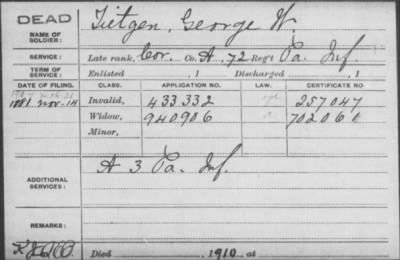 DEAD
NAME OF SOLDIER: Tietgen, George W.
SERVICE: Late rank, Cor. Co. A, 72 Reg't Pa. Inf.
TERM OF SERVICE: Enlisted , 1 Discharged , 1
DATE OF FILING. CLASS. APPLICATION NO. LAW. CERTIFICATE NO.
1881 Nov. 14 Invalid, 433332 257047
Widow, 940906 702060
Minor,
ADDITIONAL SERVICES: A 3 Pa. Inf.
REMARKS:
Died 1910, at